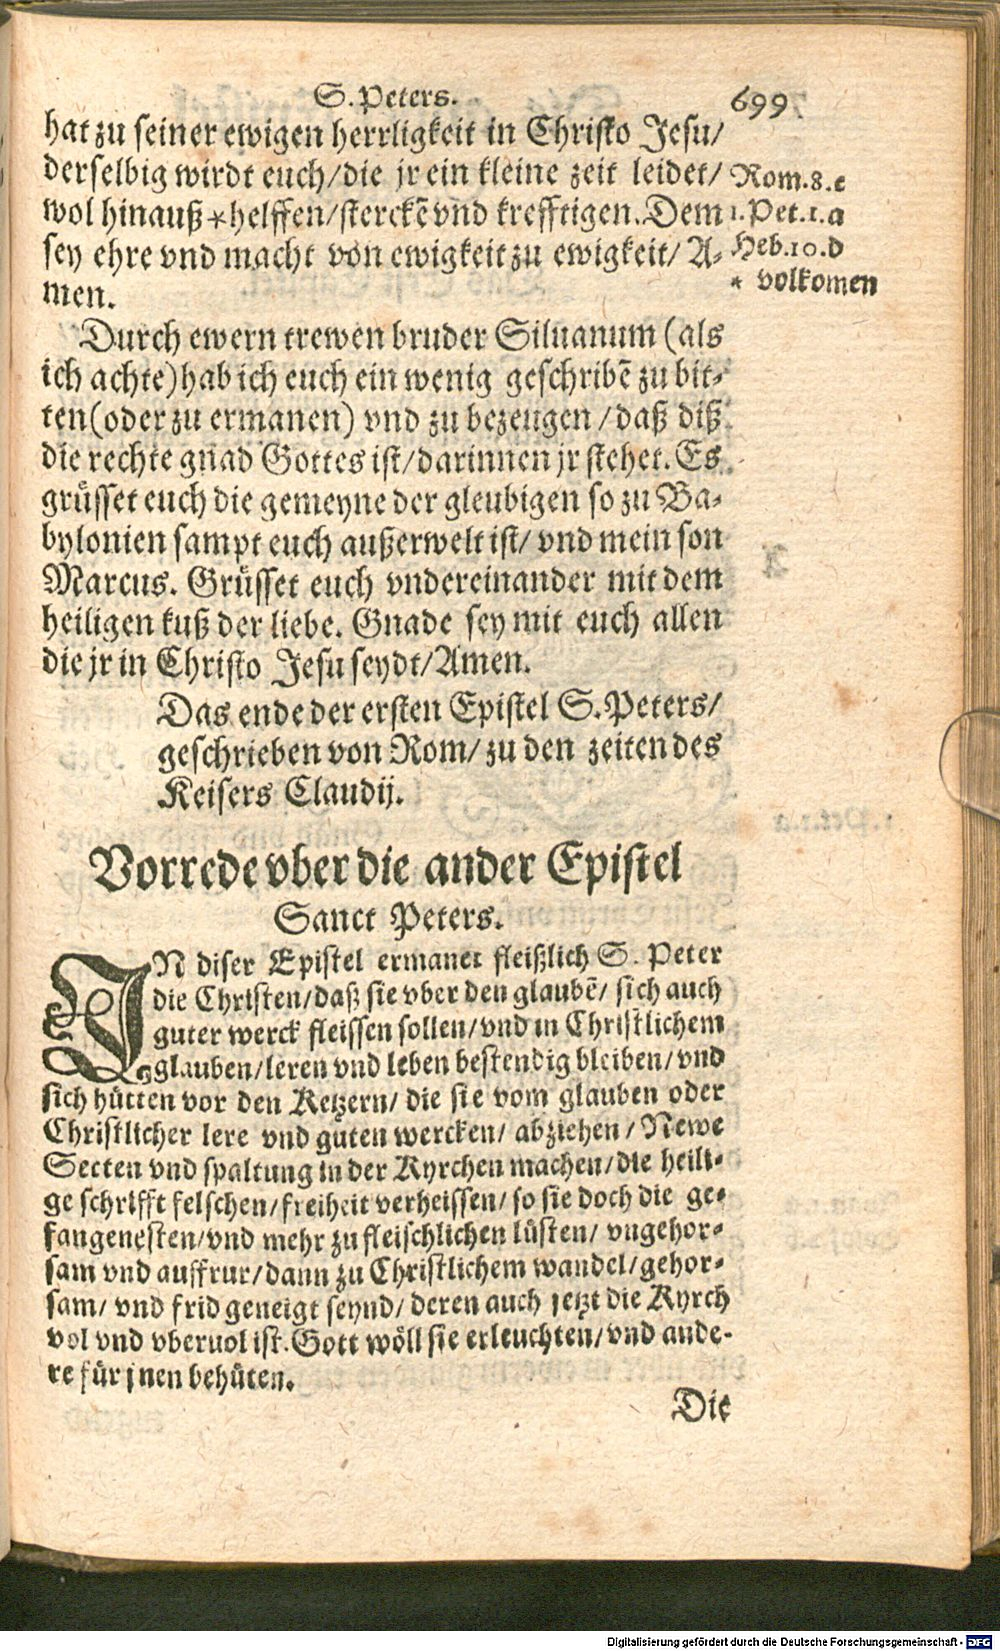 S. Peters. 699
hat zu seiner ewigen herrligkeit in Christo Jesu/
derselbig wirdt euch/die jr ein kleine zeit leidet/
wol hinauß *helffen/sterckē vnd krefftigen. Dem
sey ehre vnd macht von ewigkeit zu ewigkeit/ A-
men.
Rom.8.c
1.Pet.1.a
Heb.10.d
* volkomen
Durch ewern trewen bruder Siluanum (als
ich achte) hab ich euch ein wenig geschribē zu bit-
ten (oder zu ermanen) vnd zu bezeugen /daß diß
die rechte gnad Gottes ist/darinnen jr stehet. Es
grüsset euch die gemeyne der gleubigen so zu Ba-
bylonien sampt euch außerwelt ist/ vnd mein son
Marcus. Grüsset euch vndereinander mit dem
heiligen kuß der liebe. Gnade sey mit euch allen
die jr in Christo Jesu seydt/Amen.
Das ende der ersten Epistel S. Peters/
geschrieben von Rom/ zu den zeiten des
Keisers Claudij.
Vorrede vber die ander Epistel
Sanct Peters.
IN diser Epistel ermanet fleißlich S. Peter
die Christen/daß sie vber den glaubē/ sich auch
guter werck fleissen sollen/vnd in Christlichem
glauben/leren vnd leben bestendig bleiben/vnd
sich hütten vor den Ketzern/ die sie vom glauben oder
Christlicher lere vnd guten wercken/ abziehen/ Newe
Secten vnd spaltung in der Kyrchen machen/die heili-
ge schrifft felschen/freiheit verheissen/ so sie doch die ge-
fangenesten/vnd mehr zu fleischlichen lüsten/ vngehor-
sam vnd auffrur/dann zu Christlichem wandel/gehor-
sam/ vnd frid geneigt seynd/ deren auch jetzt die Kyrch
vol vnd vberuol ist. Gott wöll sie erleuchten/vnd ande-
re für jnen behüten.
Die
Digitalisierung gefördert durch die Deutsche Forschungsgemeinschaft - DFG